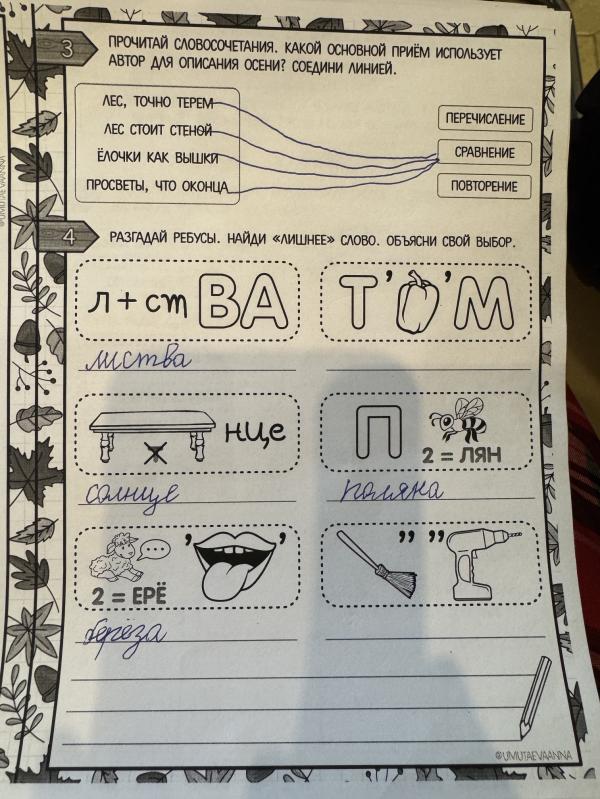 3 ПРОЧИТАЙ СЛОВОСОЧЕТАНИЯ. КАКОЙ ОСНОВНОЙ ПРИЁМ ИСПОЛЬЗУЕТ
АВТОР ДЛЯ ОПИСАНИЯ ОСЕНИ? СОЕДИНИ ЛИНИЕЙ.
ЛЕС, ТОЧНО ТЕРЕМ
ЛЕС СТОИТ СТЕНОЙ
ЁЛОЧКИ КАК ВЫШКИ
ПРОСВЕТЫ, ЧТО ОКОНЦА
ПЕРЕЧИСЛЕНИЕ
СРАВНЕНИЕ
ПОВТОРЕНИЕ
4 РАЗГАДАЙ РЕБУСЫ. НАЙДИ «ЛИШНЕЕ» СЛОВО. ОБЪЯСНИ СВОЙ ВЫБОР.
л + ст ВА
Т ’ ’ М
листва
нце
П 2 = ЛЯН
солнце
поляна
2 = ЕРЁ ’ ’
” ”
берёза
@UMUTAEVAANNA
@UMUTAEVAANNA